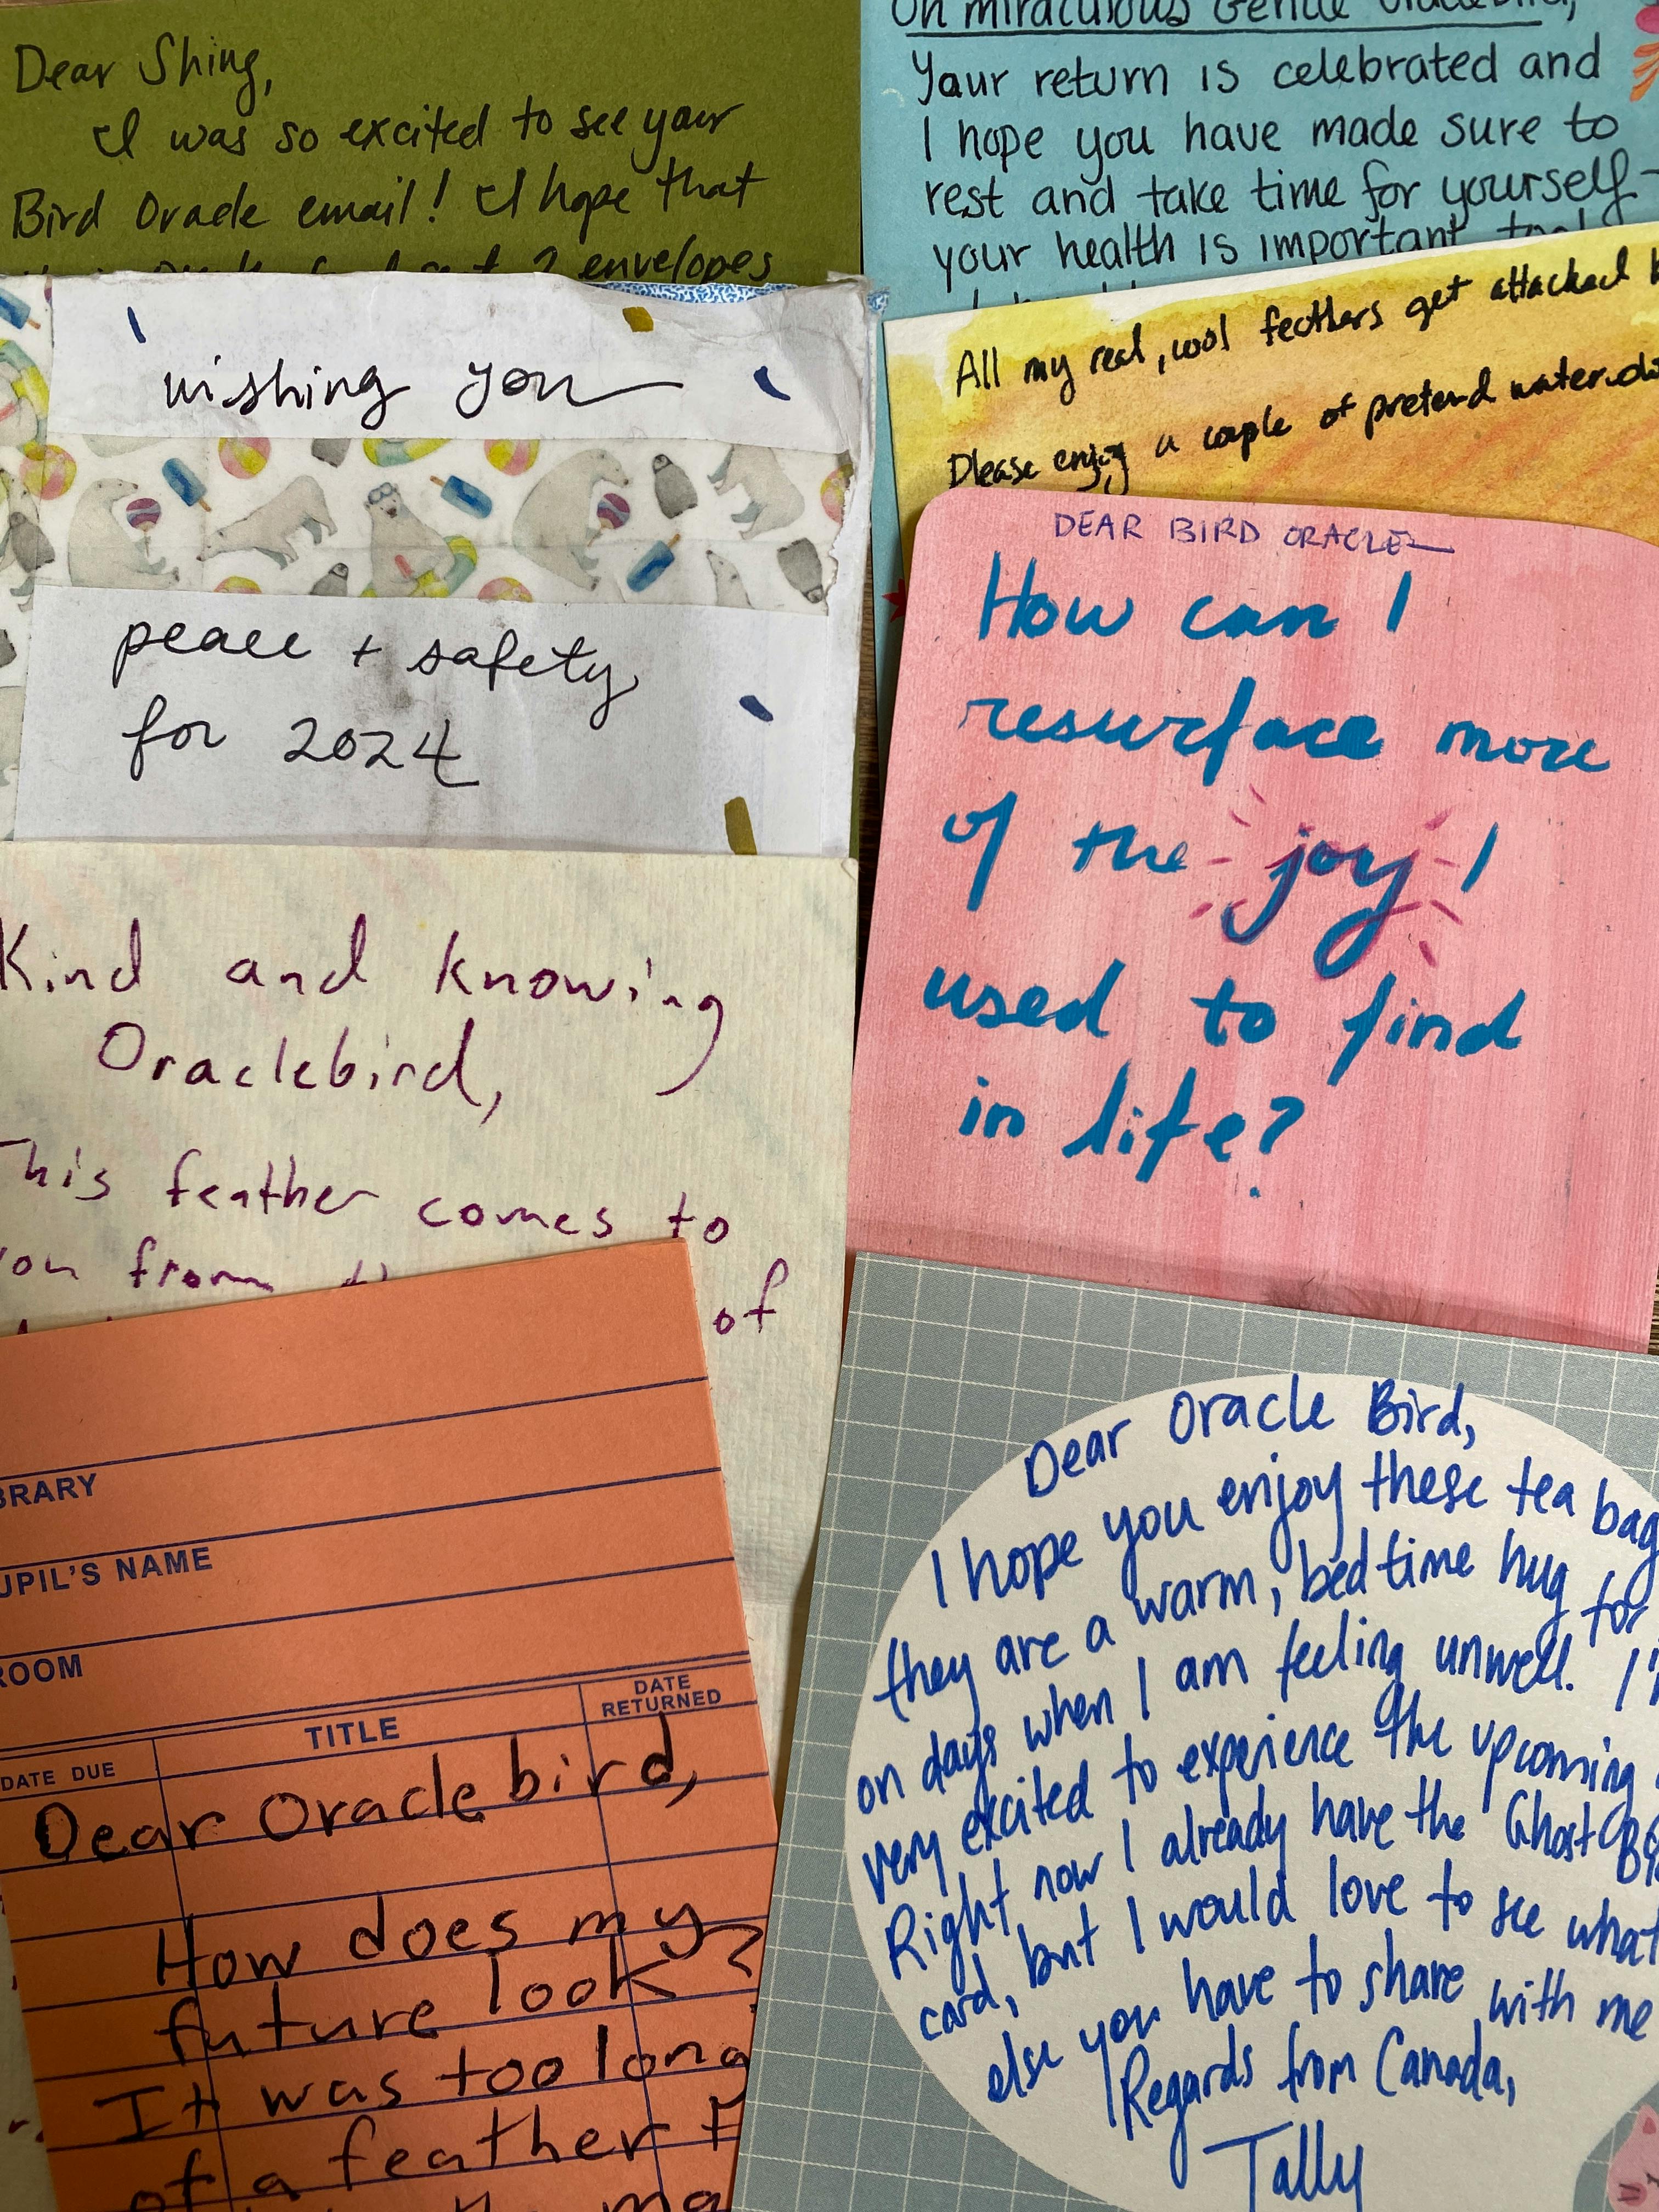 Dear Shing,
I was so excited to see your
Bird Oracle email! I hope that
2 envelopes
Oh miraculous Gentle
Your return is celebrated and
I hope you have made sure to
rest and take time for yourself-
your health is important too!
All my real, cool feathers get attached
Please enjoy a couple of pretend
wishing you
peace + safety
for 2024
DEAR BIRD ORACLE
How can I
resurface more
of the joy I
used to find
in life?
Kind and knowing
Oraclebird,
This feather comes to
you from
of
BRARY
UPIL'S NAME
ROOM
DATE DUE
TITLE
DATE
RETURNED
Dear Oracle bird,
How does my
future look?
It was too long
of a feather
ma
Dear Oracle Bird,
I hope you enjoy these tea bag
they are a warm, bedtime hug for
on days when I am feeling unwell. I'
very excited to experience the upcoming
Right now I already have the Ghost
card, but I would love to see what
else you have to share with me
Regards from Canada,
Tally